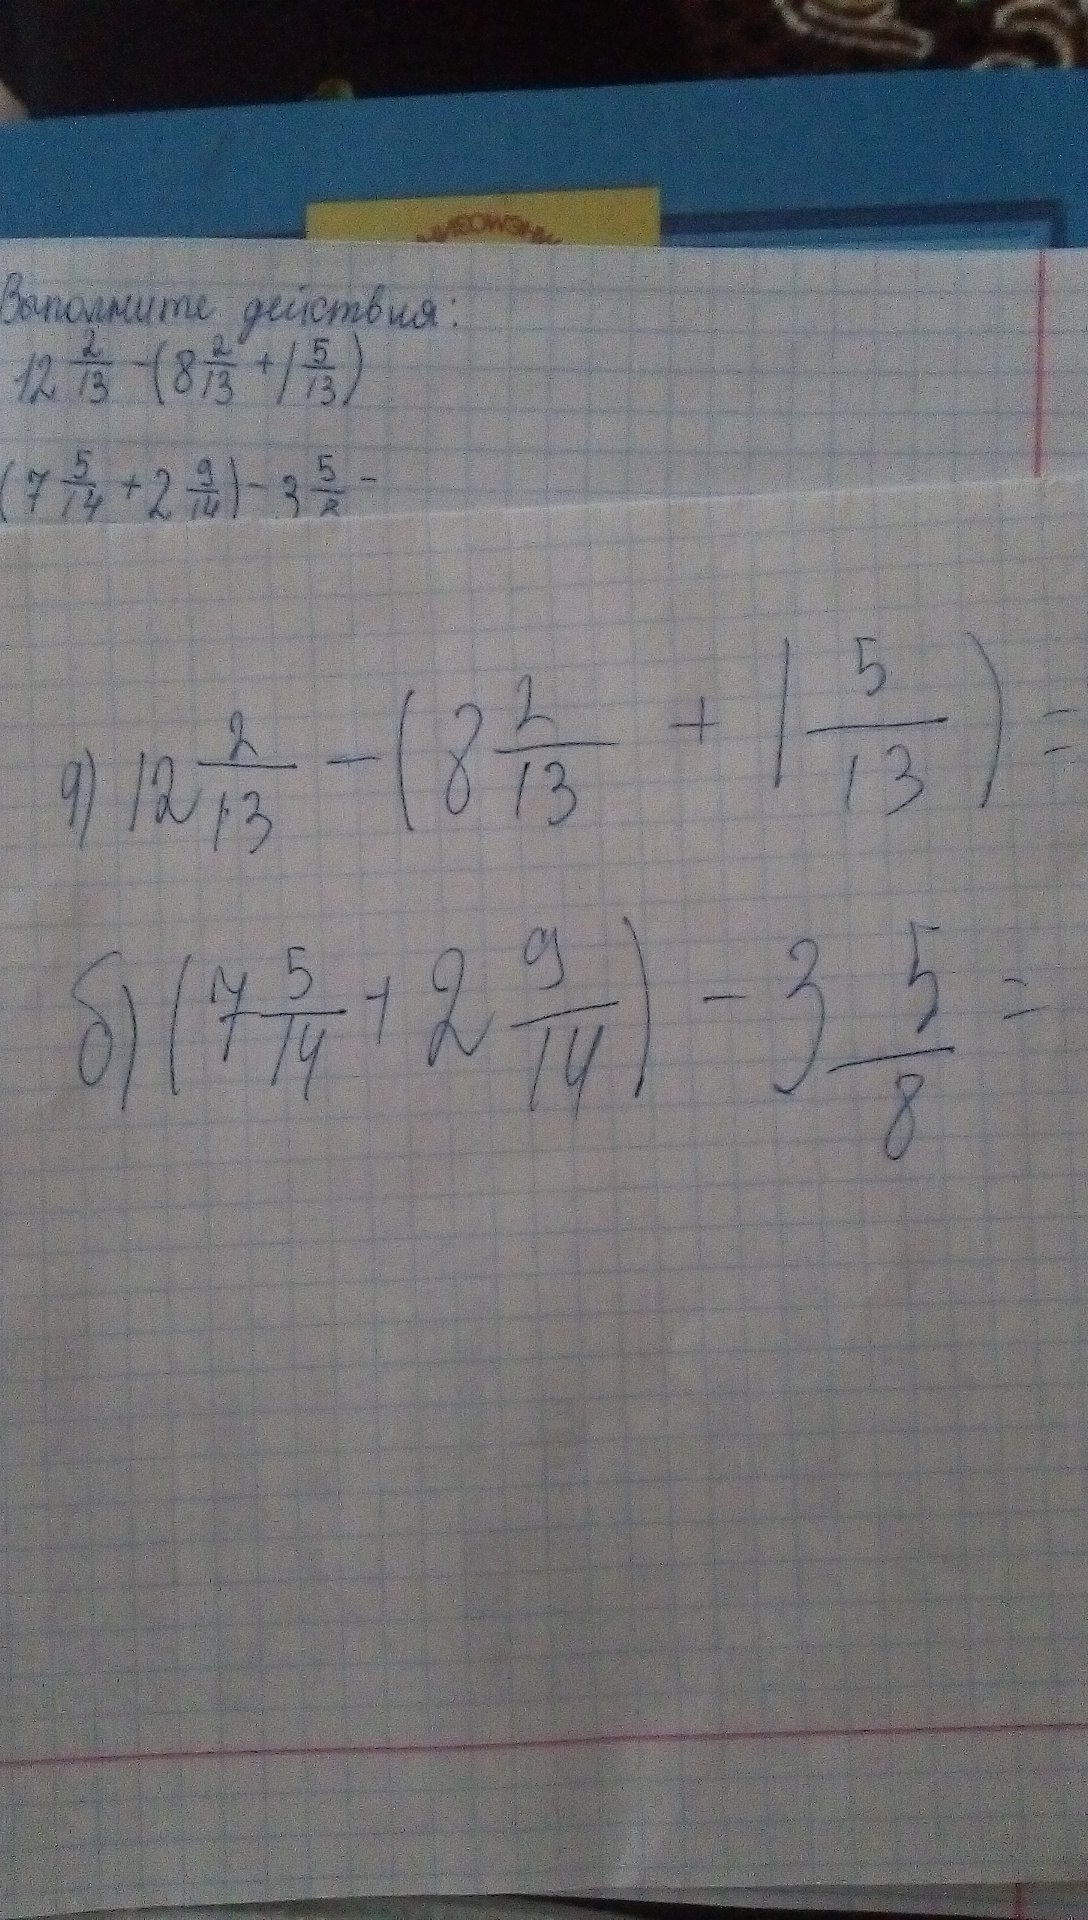 МНЕМОЗИНА
Выполните действия:
12 2/13 - (8 2/13 + 1 5/13)
(7 5/14 + 2 9/14) - 3 5/8 =
а) 12 2/13 - (8 2/13 + 1 5/13) =
б) (7 5/14 + 2 9/14) - 3 5/8 =